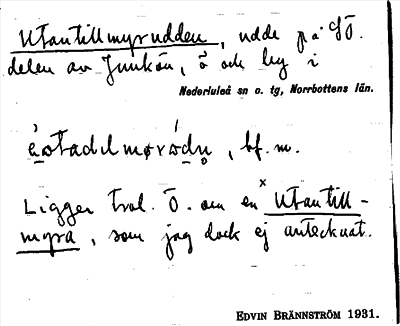 Utantillmyrudden, udde på SÖ.
delen av Junkön, ö och by i
Nederluleå sn o. tg, Norrbottens län.
, bf. m.
Ligger trol. Ö. om en ˣUtantill-
myra, som jag dock ej antecknat.
EDVIN BRÄNNSTRÖM 1931.